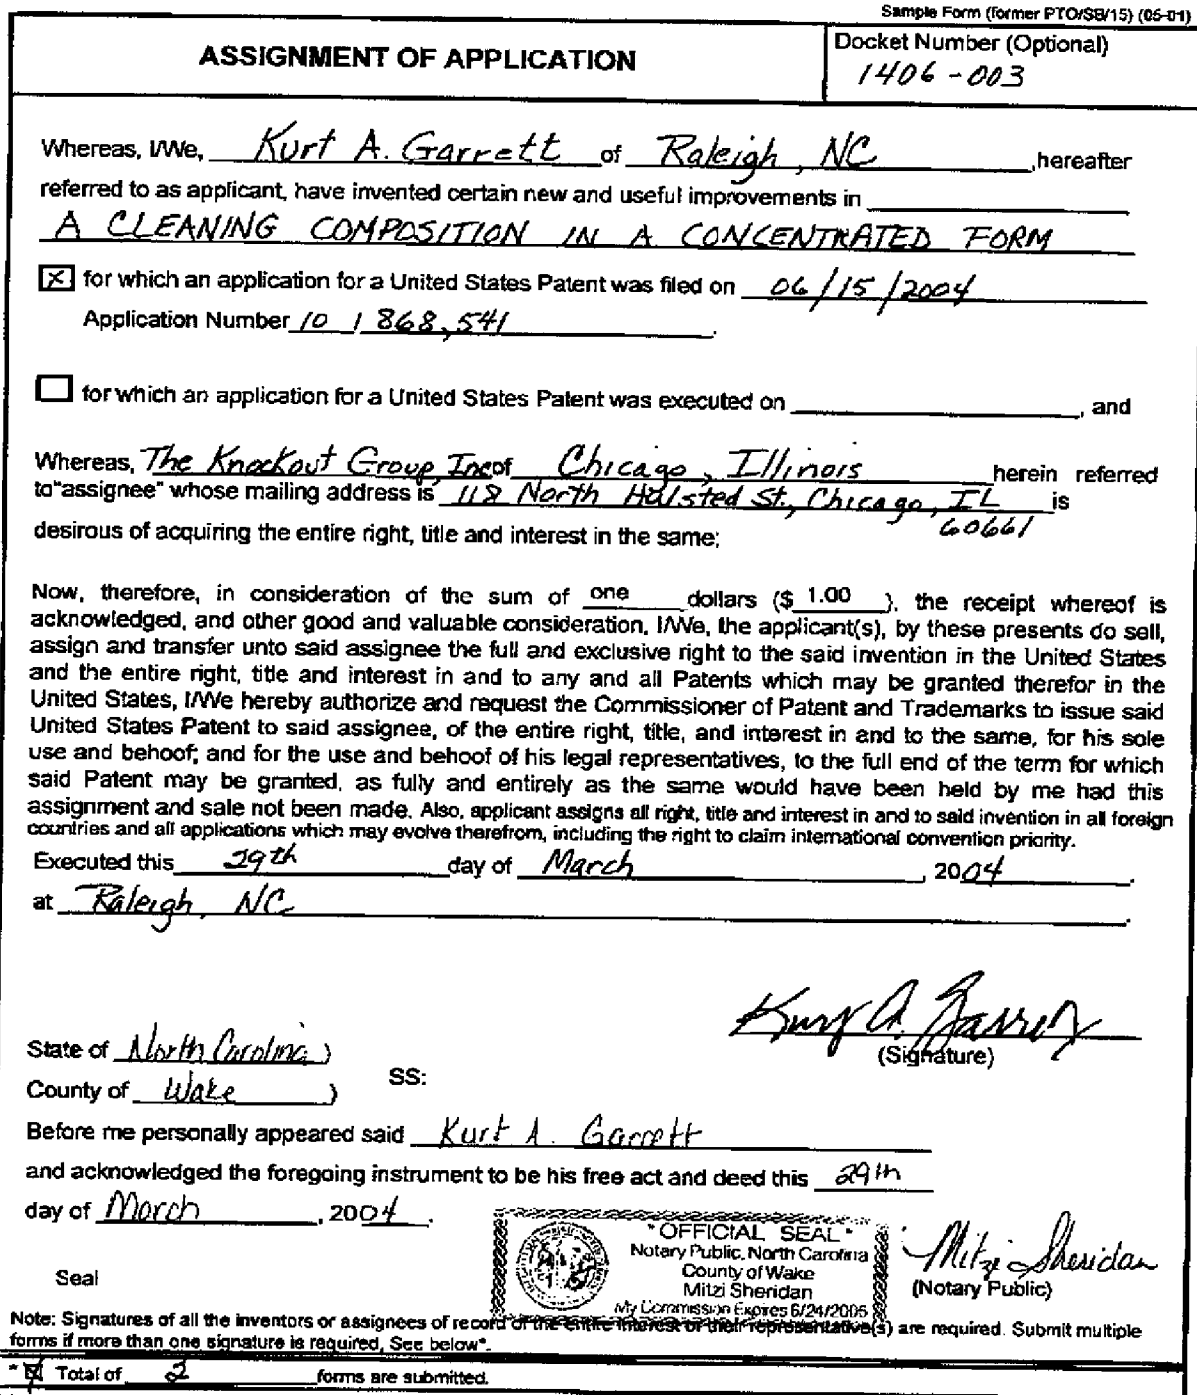 Sample Form (former PTO/SB/15) (05-01)
ASSIGNMENT OF APPLICATION
Docket Number (Optional)
1406-003
Whereas, I/We, Kurt A. Garrett of Raleigh, NC ,hereafter
referred to as applicant, have invented certain new and useful improvements in
A CLEANING COMPOSITION IN A CONCENTRATED FORM
[X] for which an application for a United States Patent was filed on 06/15/2004
Application Number 10 / 868,541 .
for which an application for a United States Patent was executed on , and
Whereas, The Knockout Group, Inc of Chicago, Illinois herein referred
to"assignee" whose mailing address is 118 North Halsted St., Chicago, IL is
60661
desirous of acquiring the entire right, title and interest in the same;
Now, therefore, in consideration of the sum of one dollars ($ 1.00 ), the receipt whereof is
acknowledged, and other good and valuable consideration, I/We, the applicant(s), by these presents do sell,
assign and transfer unto said assignee the full and exclusive right to the said invention in the United States
and the entire right, title and interest in and to any and all Patents which may be granted therefor in the
United States, I/We hereby authorize and request the Commissioner of Patent and Trademarks to issue said
United States Patent to said assignee, of the entire right, title, and interest in and to the same, for his sole
use and behoof; and for the use and behoof of his legal representatives, to the full end of the term for which
said Patent may be granted, as fully and entirely as the same would have been held by me had this
assignment and sale not been made. Also, applicant assigns all right, title and interest in and to said invention in all foreign
countries and all applications which may evolve therefrom, including the right to claim international convention priority.
Executed this 29th day of March , 2004 .
at Raleigh, NC .
Kurt A. Garrett
(Signature)
State of North Carolina )
SS:
County of Wake )
Before me personally appeared said Kurt A. Garrett
and acknowledged the foregoing instrument to be his free act and deed this 29th
day of March , 2004 .
"OFFICIAL SEAL"
Notary Public, North Carolina
County of Wake
Mitzi Sheridan
My Commission Expires 6/24/2005
Mitzi Sheridan
(Notary Public)
Seal
Note: Signatures of all the inventors or assignees of record of the entire interest or their representative(s) are required. Submit multiple
forms if more than one signature is required, See below*.
* [X] Total of 2 forms are submitted.